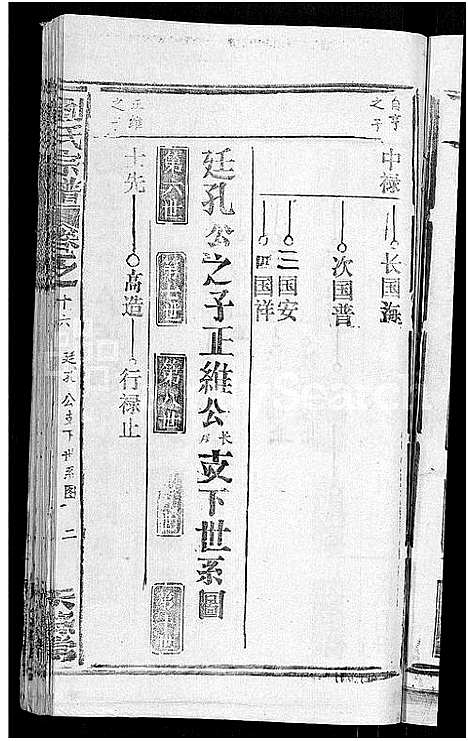 自亨之子
中禄
长国海
次国普
三国安
四国祥
廷孔公之子正維公長房支下世系圖
第六世
第七世
第八世
第九世
第十世
正維之子
士先
高造
行禄止
劉氏宗譜
十六
廷孔公支下世系图
二